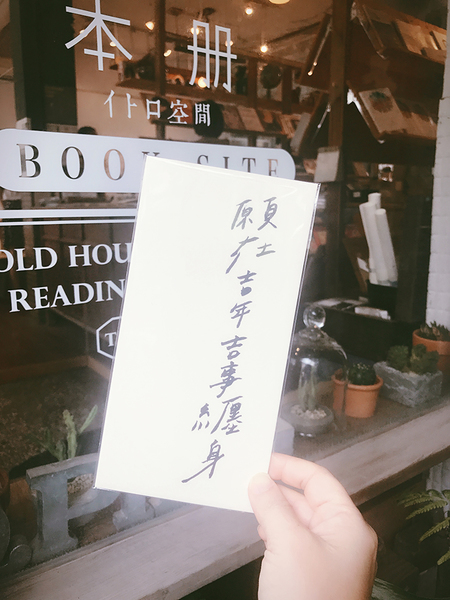 本册
イトロ空間
BOOK SITE
OLD HOU
READIN
T
願在吉年吉事纏身